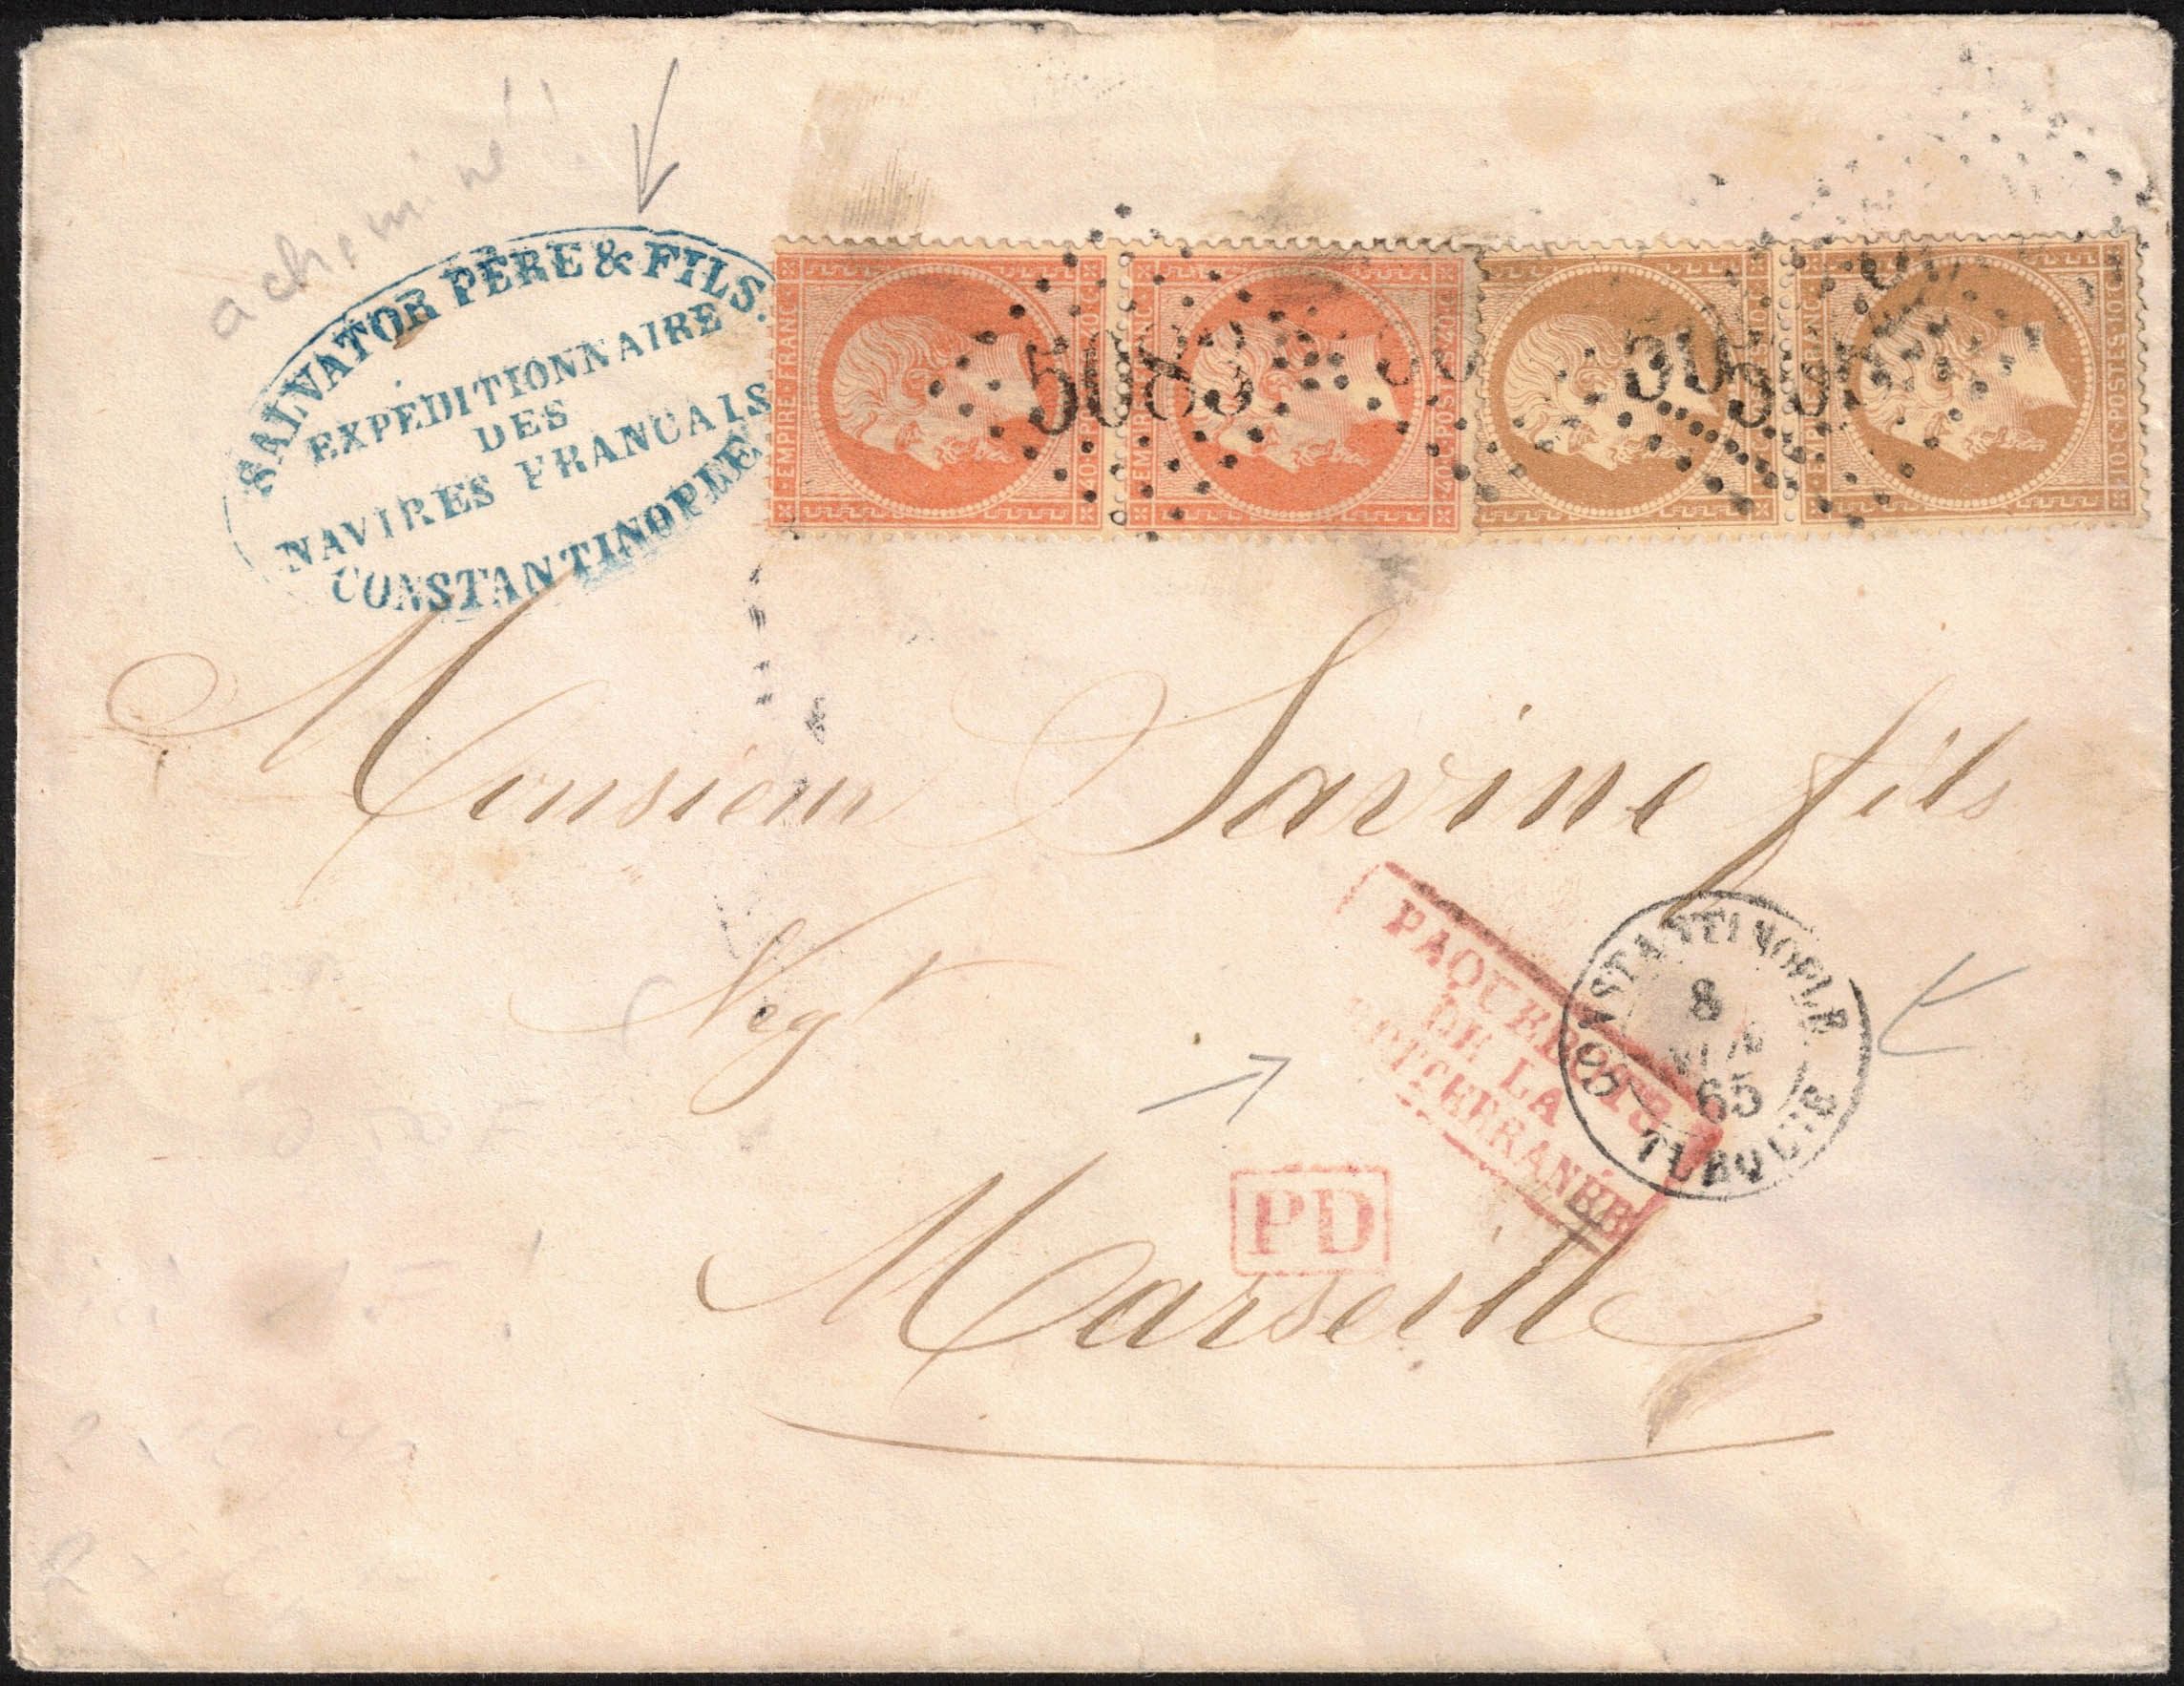 acheminé
SALVATOR PÈRE & FILS.
EXPÉDITIONNAIRE
DES
NAVIRES FRANCAIS
CONSTANTINOPLE
EMPIRE·FRANC·
40·C·POSTES·40·C
EMPIRE·FRANC·
40·C·POSTES·40·C
10·C·POSTES·10·C
EMPIRE·FRANC·
10·C·POSTES·10·C
5083
Monsieur Savine fils
Negt
Marseille
PAQUEBOTS
DE LA
MÉDITERRANÉE
CONSTANTINOPLE
8
65
TURQUIE
PD